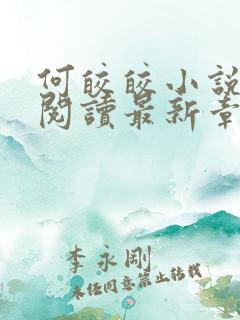 何皎皎小說
閱讀最新章
李永剛
未經同意禁止轉載